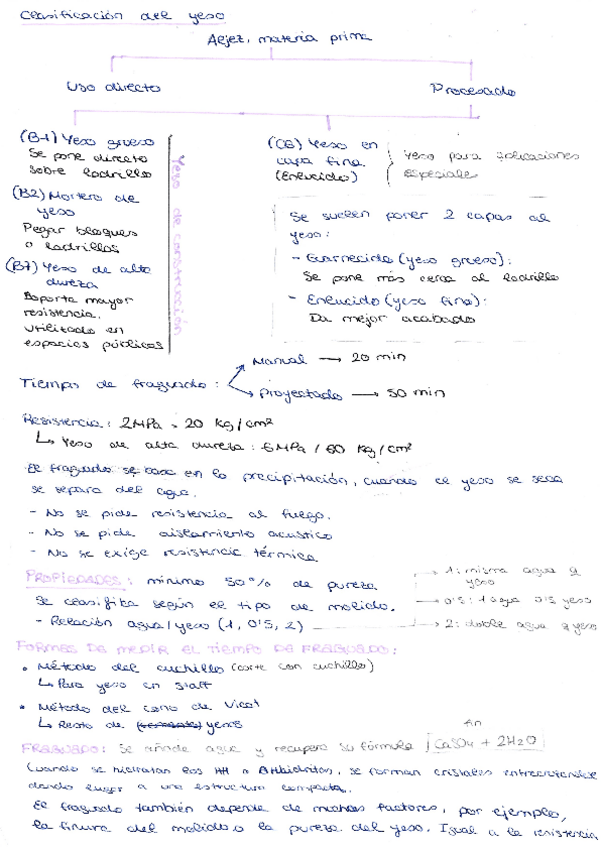 Clasificación del yeso
Aljez, materia prima
Uso directo
Procesado
(B1) Yeso grueso
Se pone directo
sobre ladrillo
(B2) Mortero de
yeso
Pegar bloques
o ladrillos
(B7) Yeso de alta
dureza
Soporta mayor
resistencia.
Utilizado en
espacios públicos
Yeso de construcción
(C6) Yeso en
capa fina
(Enlucido)
Yeso para aplicaciones
especiales
Se suelen poner 2 capas al
yeso:
- Guarnecido (yeso grueso):
Se pone más cerca al ladrillo
- Enlucido (yeso fino):
Da mejor acabado
Tiempo de fraguado:
Manual → 20 min
Proyectado → 50 min
Resistencia: 2MPa 20 kg/cm²
↳ Yeso de alta dureza: 6MPa / 60 kg/cm²
El fraguado se basa en la precipitación, cuando el yeso se seca
se separa del agua.
- No se pide resistencia al fuego.
- No se pide aislamiento acústico
- No se exige resistencia térmica
PROPIEDADES: mínimo 50% de pureza
Se clasifika según el tipo de molido.
- Relación agua/yeso (1, 0'5, 2)
→ 1: misma agua q
yeso
→ 0'5: 1 agua 0'5 yeso
→ 2: doble agua q yeso
FORMAS DE MEDIR EL TIEMPO DE FRAGUADO:
• Método del cuchillo (corte con cuchillo)
↳ Para yeso en
• Método del cono de Vicat
↳ Resto de yesos
FRAGUADO: Se añade agua y recupera su fórmula CaSO4 + 2H2O
fin
Cuando se hidratan los HH o Anhidritas, se forman cristales entrecruzándose
dando lugar a una estructura compacta.
El fraguado también depende de muchos factores, por ejemplo,
la finura del molido o la pureza del yeso. Igual a la resistencia